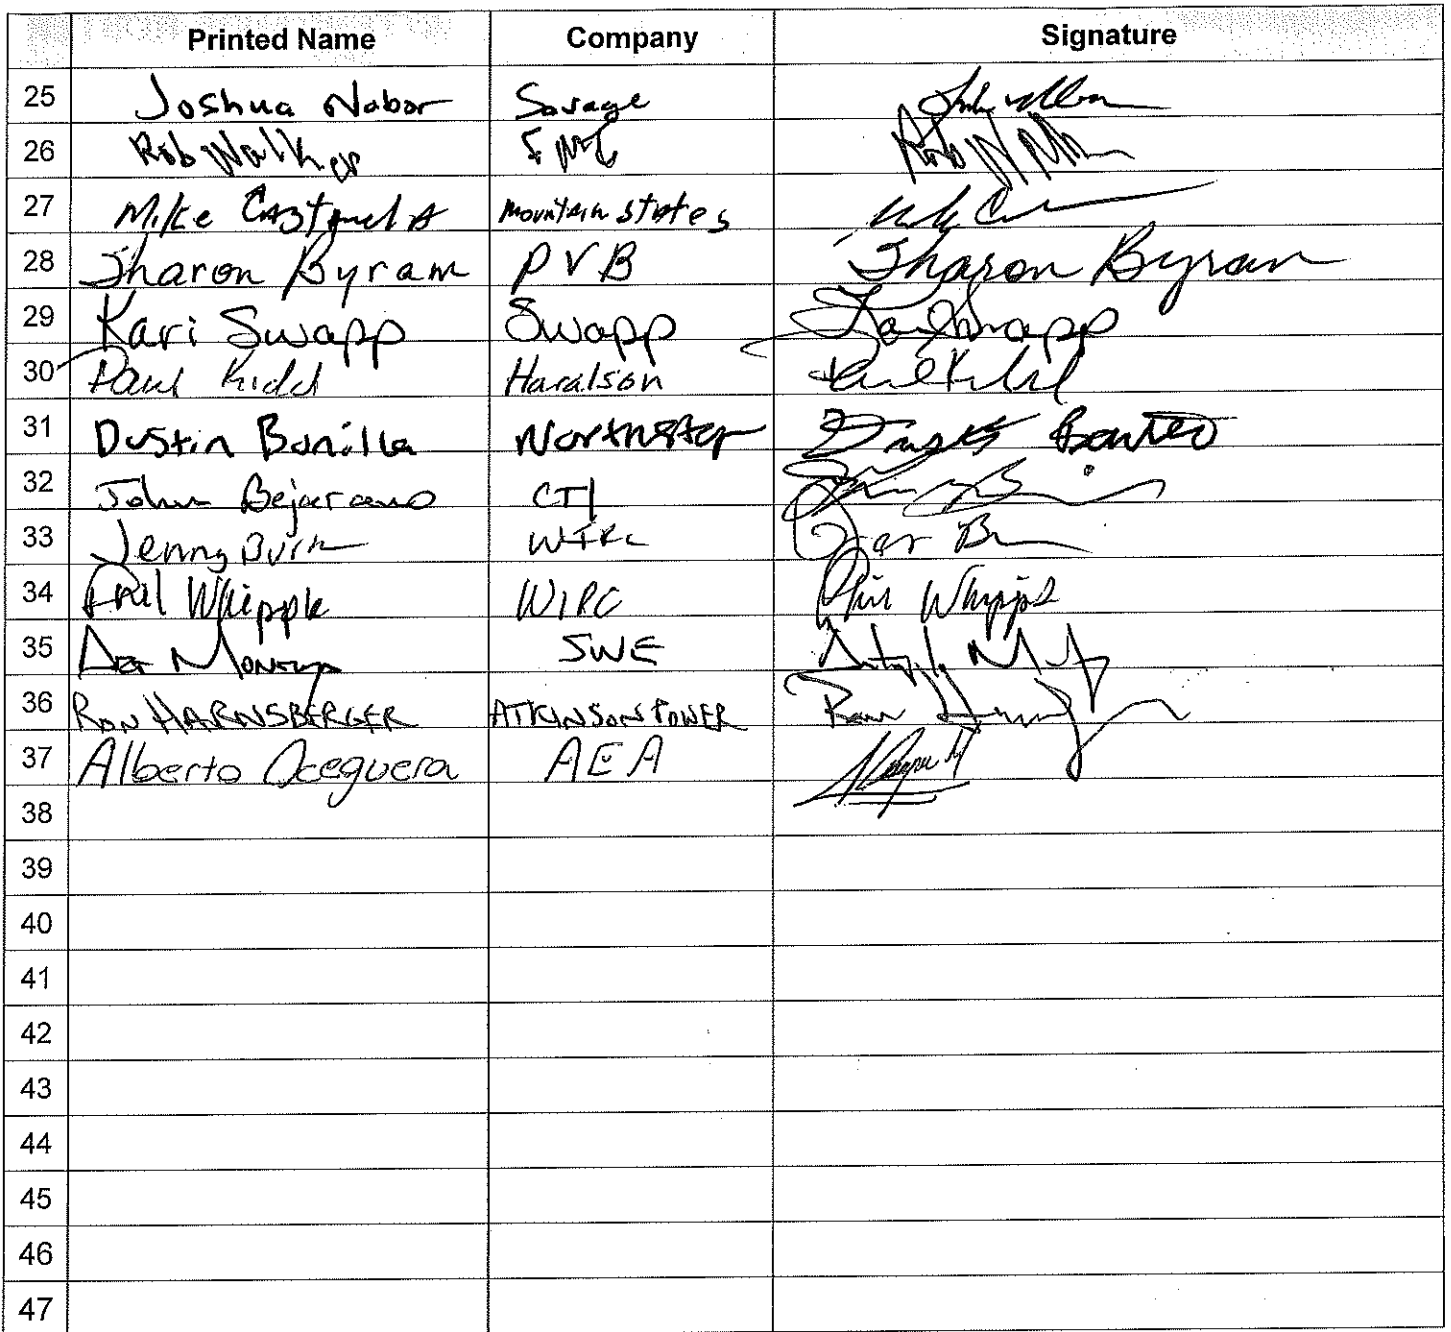 Printed Name Company Signature
25 Joshua Nabor Savage
26 Rob Walker
27 Mike Mountain States
28 Sharon Byram PVB Sharon Byram
29 Kari Swapp Swapp Kari Swapp
30 Paul Kidd Haralson Paul Kidd
31 Dustin Bonilla Northstar
32 John Bejarano CTI
33 Jenny WIRC
34 Phil Whipple WIRC Phil Whipple
35 Art Montoya SWE
36 RON HARNSBERGER ATKINSON POWER Ron
37 Alberto Oceguera AEA
38
39
40
41
42
43
44
45
46
47